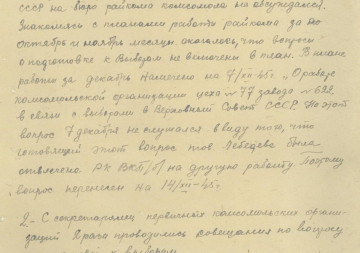 СССР на бюро райкома комсомола не обсуждался.
Знакомясь с планами работы райкома за
октябрь и ноябрь месяцы, оказалось, что вопросы
о подготовке к выборам не включены в план. В плане
работы за декабрь намечено на 7/XII-45г. „О работе
комсомольской организации цеха №77 завода №632,
в связи с выборами в Верховный Совет СССР. Но этот
вопрос 7 декабря не слушался ввиду того, что
готовящий этот вопрос тов. Лебедева была
отвлечена РК ВКП/б/ на другую работу. Поэтому
вопрос перенесен на 14/XII-45г.
2- С секретарями первичных комсомольских органи-
заций 2 раза проводились совещания по вопросу
выборам